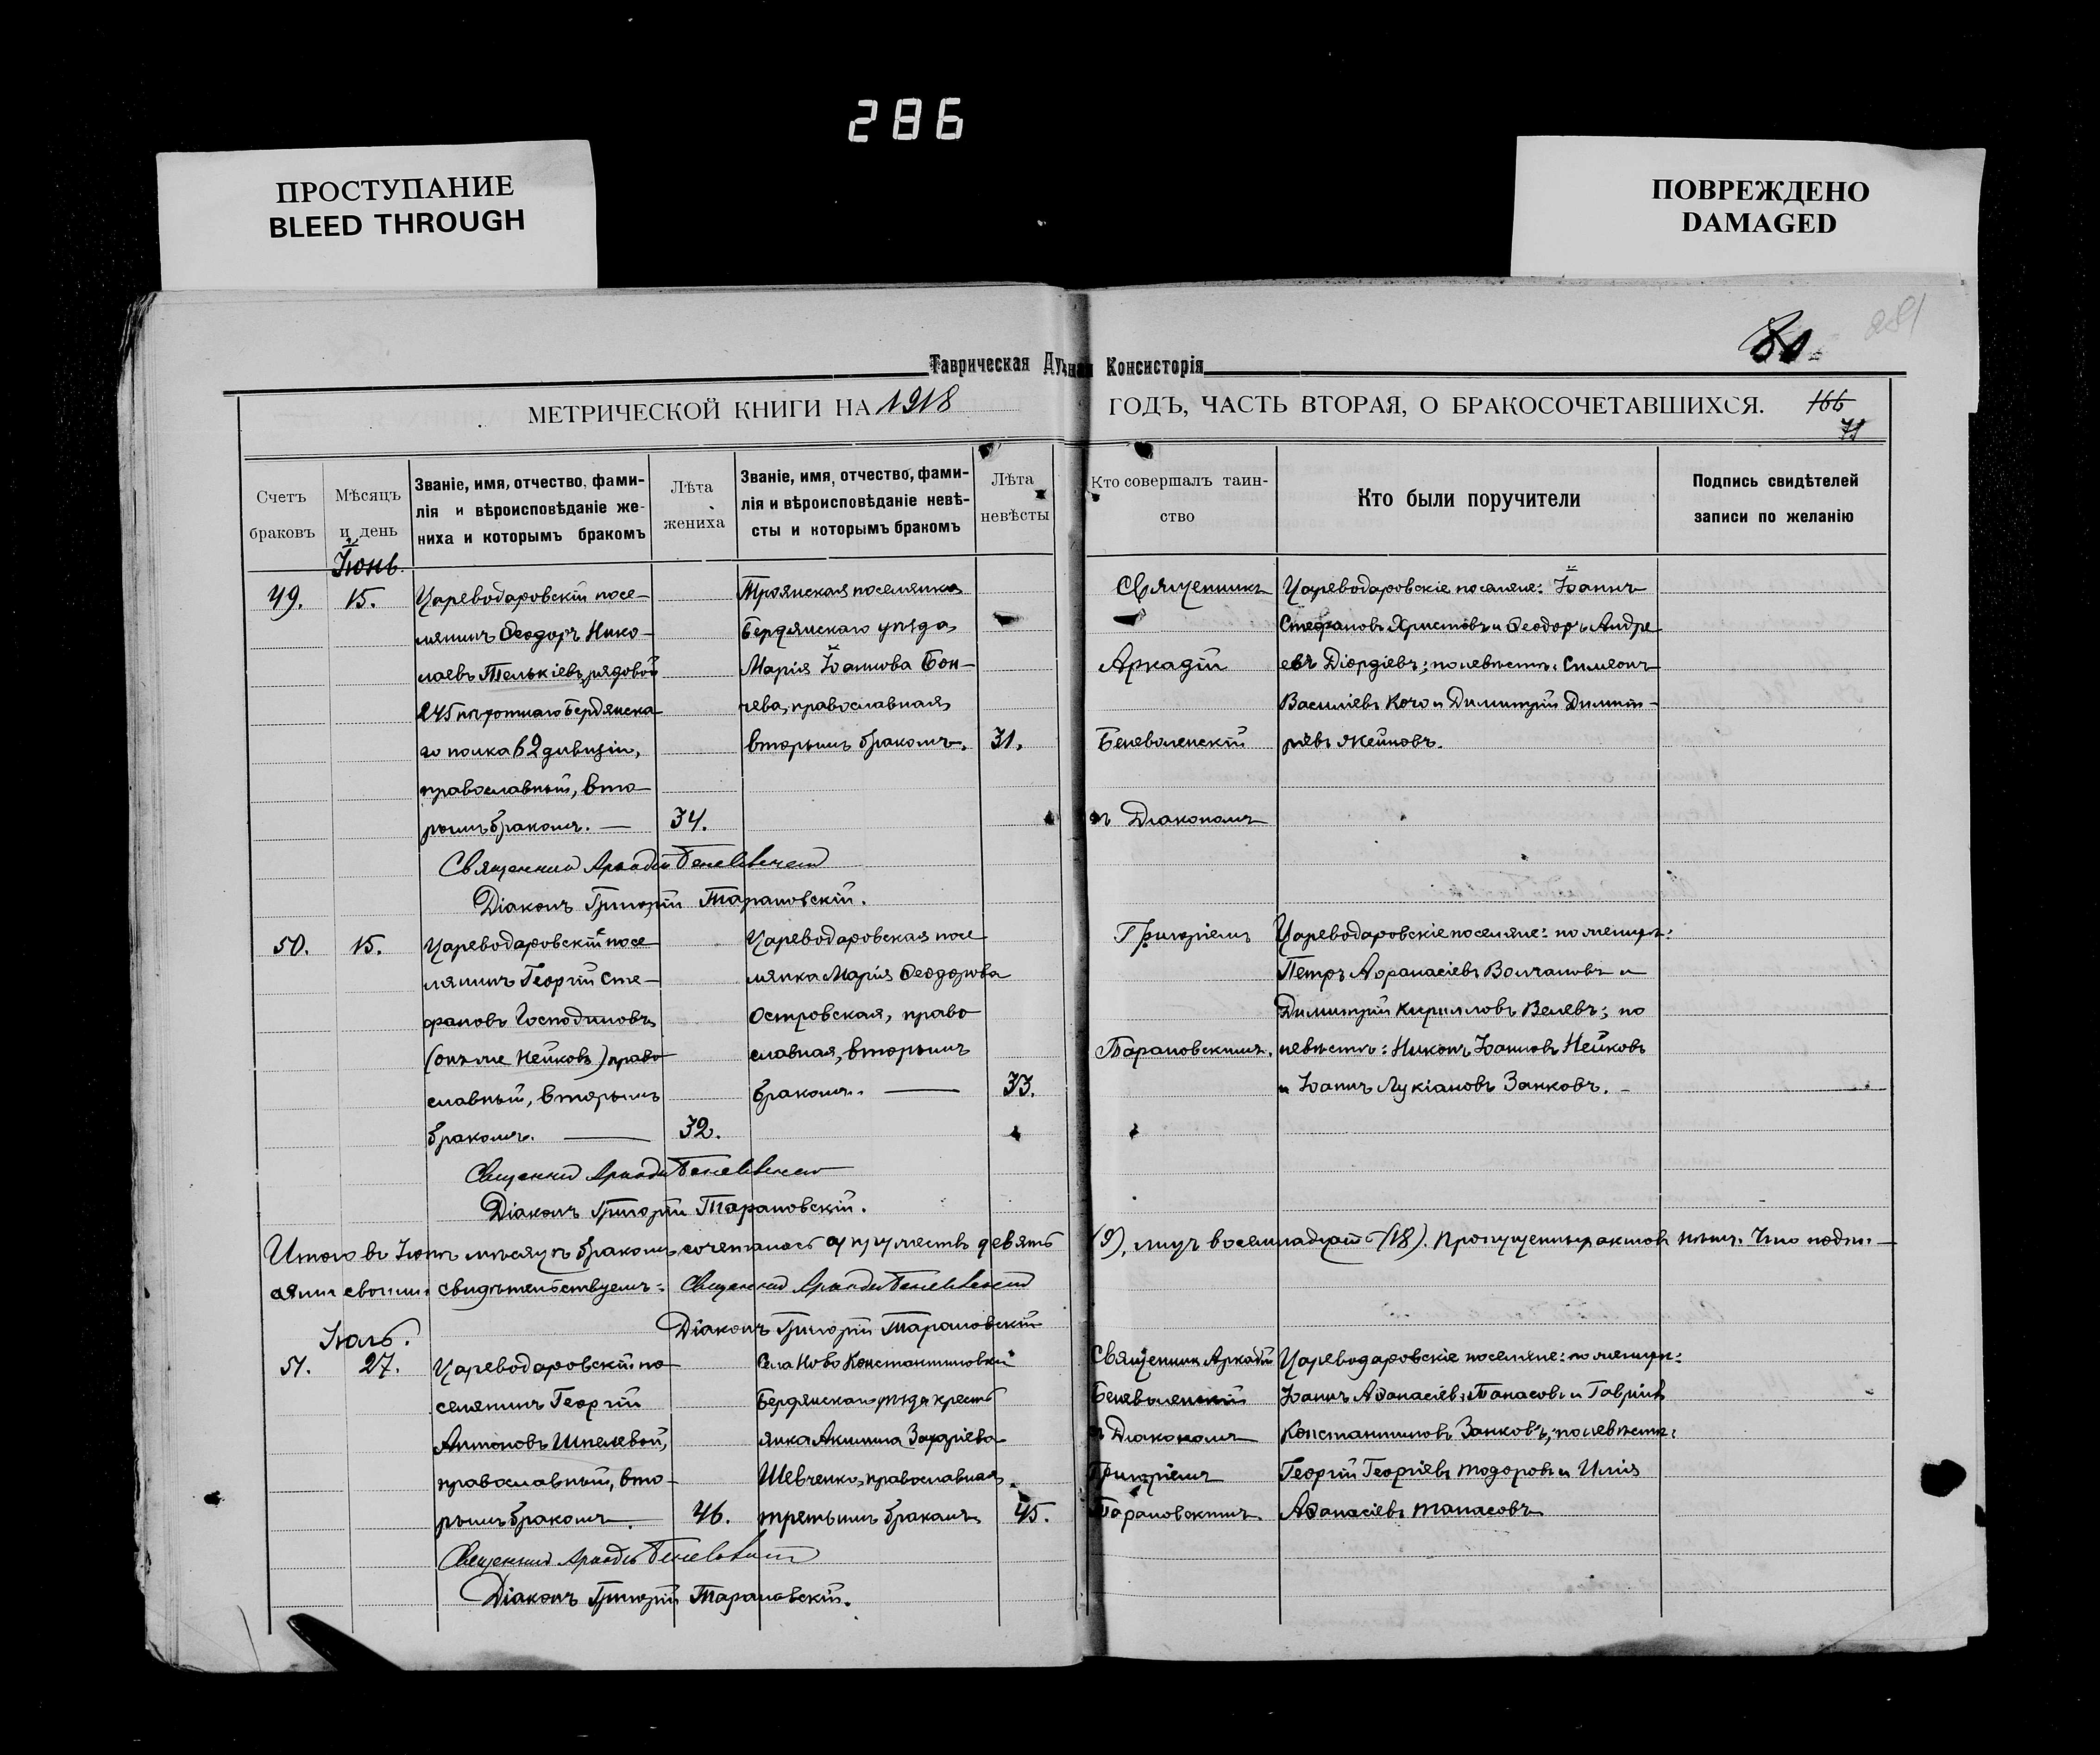 286
ПРОСТУПАНИЕ
BLEED THROUGH
ПОВРЕЖДЕНО
DAMAGED
80
281
Таврическая Духовная Консисторія
МЕТРИЧЕСКОЙ КНИГИ НА 1918 ГОДЪ, ЧАСТЬ ВТОРАЯ, О БРАКОСОЧЕТАВШИХСЯ.
166
71
Счетъ браковъ
Мѣсяцъ и день
Званіе, имя, отчество, фами-
лія и вѣроисповѣданіе же-
ниха и которымъ бракомъ
Лѣта жениха
Званіе, имя, отчество, фами-
лія и вѣроисповѣданіе невѣ-
сты и которымъ бракомъ
Лѣта невѣсты
Кто совершалъ таин-
ство
Кто были поручители
Подпись свидѣтелей
записи по желанію
Іюнь.
49.
15.
Цареводаровскій посе-
лянинъ Ѳеодоръ Нико-
лаевъ Телькіевъ, рядовой
245 пѣхотнаго Бердянска
го полка 62 дивизіи,
православный, вто-
рымъ бракомъ. —
34.
Троянская поселянка
Бердянскаго уѣзда,
Марія Іоаннова Бон-
чева, православная,
вторымъ бракомъ.
31.
Священникъ
Аркадій
Беневоленскій
съ Діакономъ
Цареводаровскіе поселяне: Іоаннъ
Стефановъ Христовъ и Ѳеодоръ Андре
евъ Діордіевъ; по невѣстѣ: Симеонъ
Василіевъ Кочо и Димитрій Димит-
ріевъ Якеиновъ.
Священникъ Аркадій Беневоленскій
Діаконъ Григорій Тарановскій.
50.
15.
Цареводаровскій посе
лянинъ Георгій Сте-
фановъ Господиновъ,
(онъ же Нейковъ) право
славный, вторымъ
бракомъ. —
32.
Цареводаровская посе
лянка Марія Ѳеодорова
Островская, право
славная, вторымъ
бракомъ. —
33.
Григоріемъ
Тарановскимъ.
Цареводаровскіе поселяне: по женихѣ:
Петръ Аѳанасіевъ Волчановъ и
Димитрій Кирилловъ Велевъ; по
невѣстѣ: Никонъ Іоанновъ Нейковъ
и Іоаннъ Лукіановъ Занковъ. -
Священникъ Аркадій Беневоленскій
Діаконъ Григорій Тарановскій.
Итого въ Іюнѣ мѣсяцѣ бракомъ сочеталось супружествъ девять (9), лицъ восемнадцать (18). Пропущенныхъ актовъ нѣтъ. Что подпи-
сями своими свидѣтельствуемъ: Священникъ Аркадій Беневоленскій
Діаконъ Григорій Тарановскій
Іюль.
51.
27.
Цареводаровскій по
селянинъ Георгій
Антоновъ Шпелевой,
православный, вто-
рымъ бракомъ.
46.
Села Ново Константиновки
Бердянскаго уѣзда кресть
янка Акилина Захаріева
Шевченко, православная,
третьимъ бракомъ,
45.
Священникъ Аркадій
Беневоленскій
съ Діакономъ
Григоріемъ
Тарановскимъ
Цареводаровскіе поселяне: по женихѣ:
Іоаннъ Аѳанасіевъ Танасовъ и Гавріилъ
Константиновъ Занковъ; по невѣстѣ:
Георгій Георгіевъ Тодоровъ и Илія
Аѳанасіевъ Танасовъ
Священникъ Аркадій Беневоленскій
Діаконъ Григорій Тарановскій.